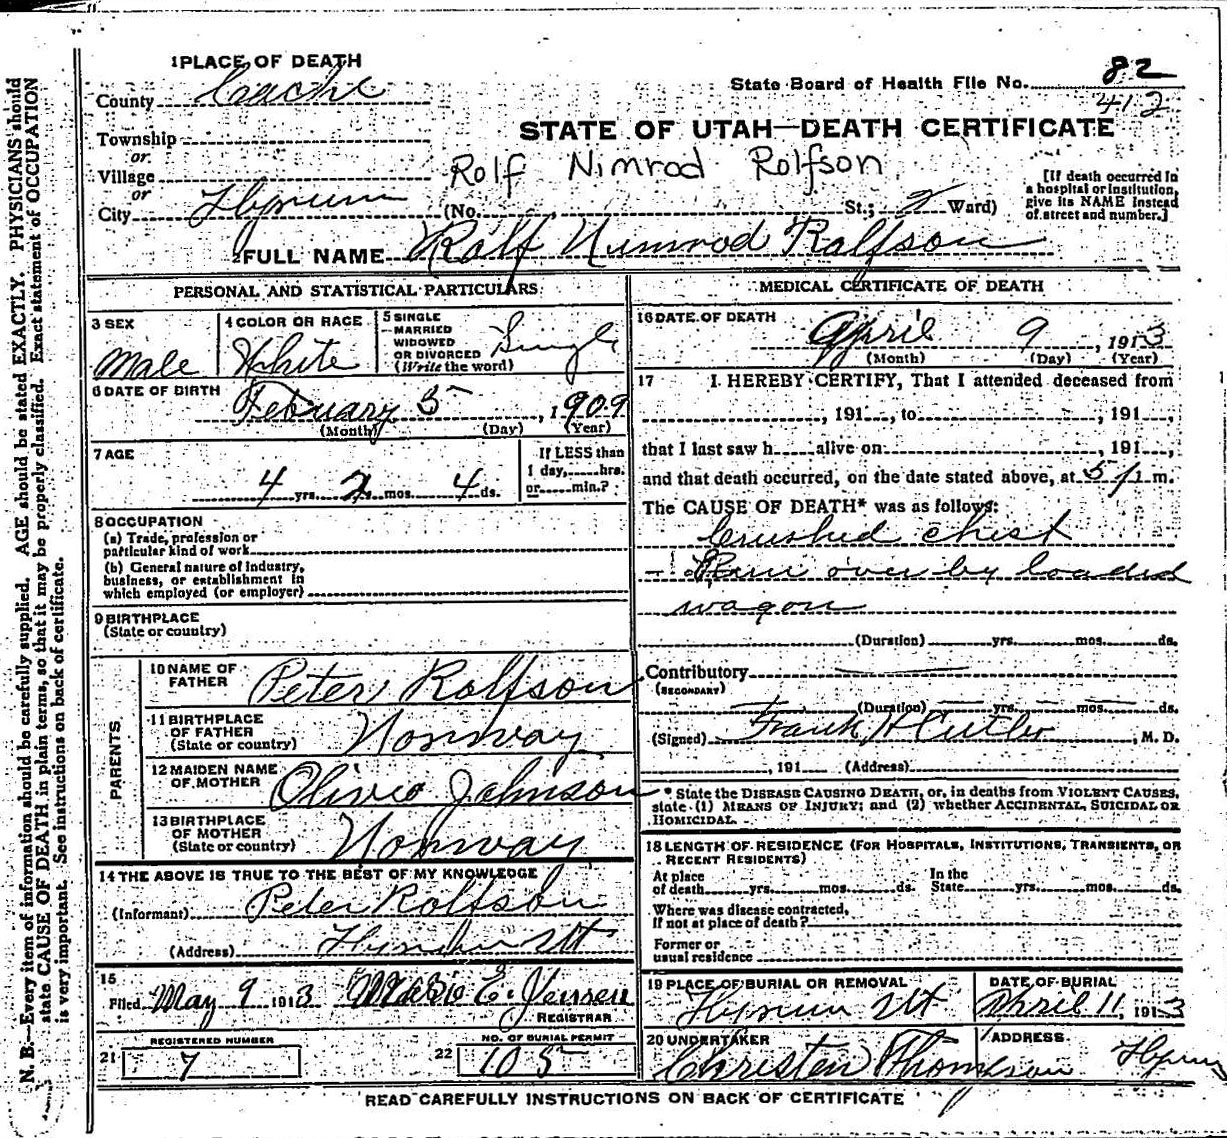 1 PLACE OF DEATH
County Cache
State Board of Health File No. 82
412
Township
or
Village
or
City Hyrum
STATE OF UTAH—DEATH CERTIFICATE
Rolf Nimrod Rolfson
(No. St.; 2 Ward)
[If death occurred in
a hospital or institution,
give its NAME instead
of street and number.]
2 FULL NAME Rolf Nimrod Rolfson
PERSONAL AND STATISTICAL PARTICULARS
3 SEX
Male
4 COLOR OR RACE
White
5 SINGLE
MARRIED
WIDOWED
OR DIVORCED
(Write the word)
Single
6 DATE OF BIRTH
February 5, 1909
(Month) (Day) (Year)
7 AGE
4 yrs. 2 mos. 4 ds.
If LESS than
1 day, hrs.
or min.?
8 OCCUPATION
(a) Trade, profession or
particular kind of work
(b) General nature of industry,
business, or establishment in
which employed (or employer)
9 BIRTHPLACE
(State or country)
PARENTS
10 NAME OF
FATHER
Peter Rolfson
11 BIRTHPLACE
OF FATHER
(State or country)
Norway
12 MAIDEN NAME
OF MOTHER
Johnson
13 BIRTHPLACE
OF MOTHER
(State or country)
Norway
14 THE ABOVE IS TRUE TO THE BEST OF MY KNOWLEDGE
(Informant) Peter Rolfson
(Address) Hyrum Ut
15
Filed May 9 1913 E. Jensen
REGISTRAR
REGISTERED NUMBER
21 7
NO. OF BURIAL PERMIT
22 105
MEDICAL CERTIFICATE OF DEATH
16 DATE OF DEATH
April 9, 1913
(Month) (Day) (Year)
17 I HEREBY CERTIFY, That I attended deceased from
, 191 , to , 191 ,
that I last saw h alive on , 191 ,
and that death occurred, on the date stated above, at 5 P m.
The CAUSE OF DEATH* was as follows:
Crushed chest
- Run over by loaded
wagon
(Duration) yrs. mos. ds.
Contributory
(SECONDARY)
(Duration) yrs. mos. ds.
(Signed) Frank H Cutler, M. D.
, 191 (Address)
* State the DISEASE CAUSING DEATH, or, in deaths from VIOLENT CAUSES,
state (1) MEANS OF INJURY; and (2) whether ACCIDENTAL, SUICIDAL OR
HOMICIDAL.
18 LENGTH OF RESIDENCE (FOR HOSPITALS, INSTITUTIONS, TRANSIENTS, OR
RECENT RESIDENTS)
At place
of death yrs. mos. ds.
In the
State yrs. mos. ds.
Where was disease contracted,
if not at place of death?
Former or
usual residence
19 PLACE OF BURIAL OR REMOVAL
Hyrum Ut
DATE OF BURIAL
April 11, 1913
20 UNDERTAKER
Christen Thomson
ADDRESS
Hyrum
READ CAREFULLY INSTRUCTIONS ON BACK OF CERTIFICATE
N. B.—Every item of information should be carefully supplied. AGE should be stated EXACTLY. PHYSICIANS should
state CAUSE OF DEATH in plain terms, so that it may be properly classified. Exact statement of OCCUPATION
is very important. See instructions on back of certificate.